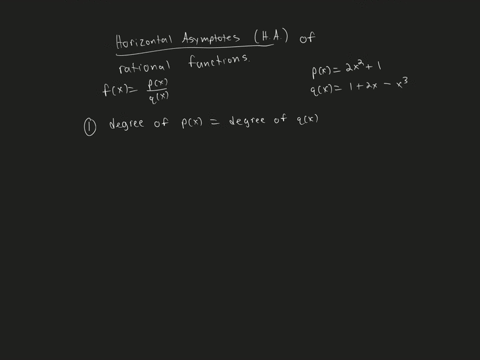 Horizontal Asymptotes (H.A.) of
rational functions.
f(x) = p(x)/q(x)
p(x) = 2x² + 1
q(x) = 1 + 2x - x³
① degree of p(x) = degree of q(x)